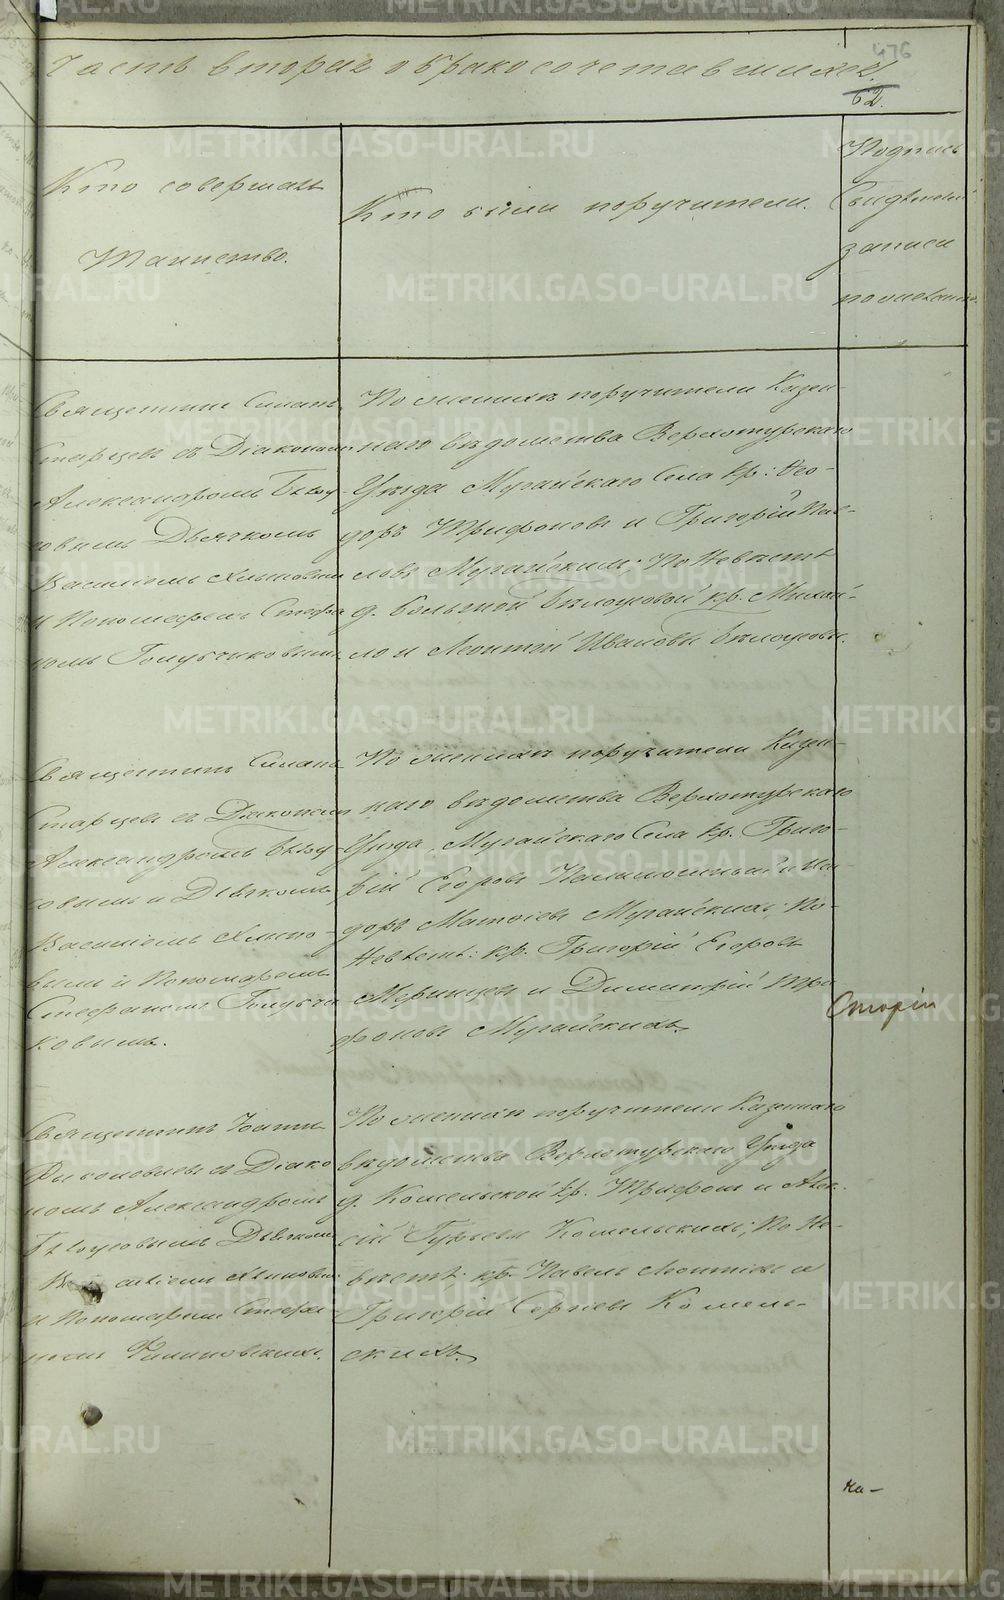 476
Часть вторая о бракосочетавшихся.
62.
Кто совершалъ
Таинство.
Кто были поручители.
Подпись
свидетелей
записи
по желанію.
Священникъ Симонъ
Старцевъ съ Діакономъ
Александромъ Бѣлоу-
совымъ Дьячкомъ
Василіемъ Хлыновымъ
и Пономаремъ Стефа-
номъ Голубчиковымъ.
По женихѣ поручители Казен-
наго вѣдомства Верхотурскаго
Уѣзда Мугайскаго Села кр: Ѳео-
доръ Трифоновъ и Григорій Пав-
ловъ Мугайскихъ; По Невѣстѣ
д. Большой Бѣлоусовой кр. Михай-
ло и Леонтій Ивановы Бѣлоусовы.
Священникъ Симонъ
Старцевъ съ Діакономъ
Александромъ Бѣлоу-
совымъ и Дьячкомъ
Василіемъ Хлыно-
вымъ и Пономаремъ
Стефаномъ Голубчи-
ковымъ.
По женихѣ поручители Казен-
наго вѣдомства Верхотурскаго
Уѣзда, Мугайскаго Села кр. Григо-
рій Егоровъ и
доръ Матвіевъ Мугайскихъ; По
Невѣстѣ: кр. Григорій Егоровъ
и Димитрій Три-
фоновъ Мугайскихъ.
Священникъ Іоаннъ
съ Діако-
номъ Александромъ
Бѣлоусовымъ Дьячкомъ
Василіемъ Хлыновымъ
и Пономаремъ Стефа-
номъ
По женихѣ поручители Казеннаго
вѣдомства Верхотурскаго Уѣзда
д. Комельской кр. Трифонъ и Алек-
сій Гурьевы Комельскихъ; По Не-
вѣстѣ: кр. Павелъ Леонтіевъ и
Григорій Сергіевъ Комель-
скихъ.
ка-
METRIKI.GASO-URAL.RU